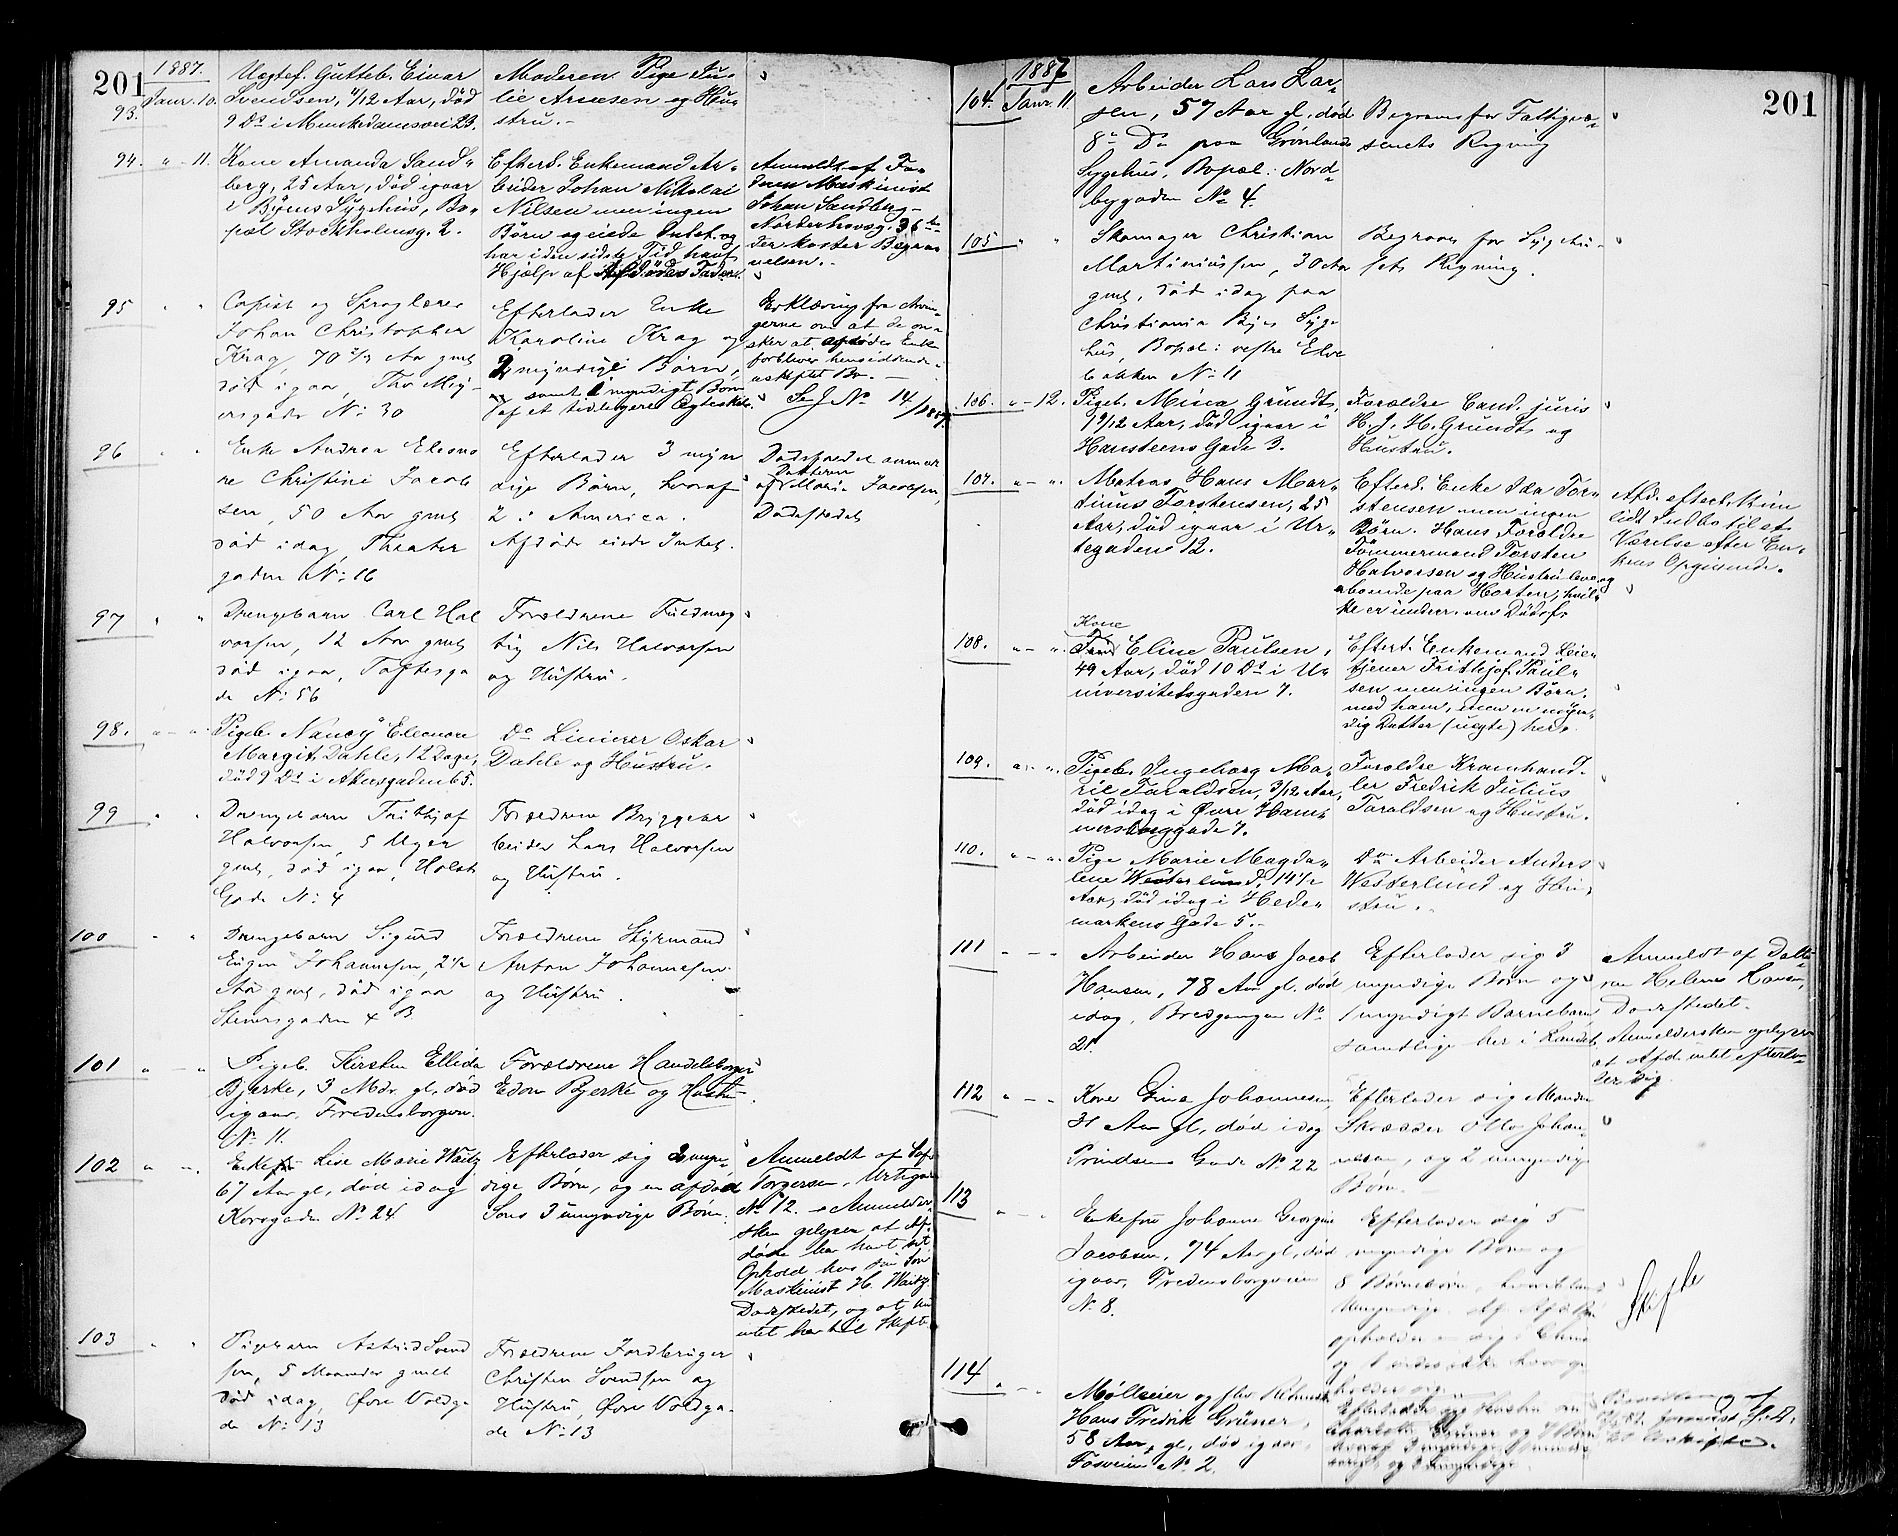 201
1887.
93.
Janr. 10.
Uægtef. Gutteb. Einar
Svendsen, 11/12 Aar, død
9 Ds i Munkedamsvei 23.
Moderen Pige Ju-
lie Arnesen og Hus
stru.-
94. " - 11.
Kone Amanda Sand-
berg, 25 Aar, død igaar
i Byens Sygehus, Bo-
pæl Stockholmsg. 2.
Efterl. Enkemand Ar-
beider Johan Nikolai
Nilsen men ingen
Børn og eiede Intet og
har i den sidste Tid havt
Hjælp af Afdødes Fader.
Anmeldt af Fa-
deren Maskinist
Johan Sandberg
Norderhovsg. 36
der koster Begra-
velsen.-
95 " "
Copist og Sproglærer
Johan Christopher
Krag, 70 Aar gml
død igaar, Thv Mey-
ersgade No 30
Efterlader Enke
Karoline Krag og
2 myndige Børn,
samt 1 myndigt Barn
af et tidligere Ægteskab.
Erklæring fra Arvin-
gerne om at de øn-
sker at afdødes Enke
forbliver hensiddende
uskiftet Bo.-
Se J No 14/1887
96 " "
Enke Andrea Eleono
re Christine Jacob
sen, 50 Aar gml
død idag, Theater
gaden No 16
Efterlader 3 myn
dige Børn, hvoraf
2 i America.
Afdøde eiede Intet.
Dødsfaldet anmel
af Datteren Maria Jacobsen,
Dødsstedet
97 " "
Drengebarn Carl Hal
vorsen, 12 Aar gml
død igaar, Toftesga
de No 56
Forældrene Fuldmæg
tig Nils Halvorsen
og Hustru.
98. " - "
Pigeb. Nancy Eleonore
Margit Dahle, 12 Dage,
død 9 Ds i Akersgaden 65.
Do Linierer Oskar
Dahle og Hustru.
99 " "
Drengebarn Frithjof
Halvorsen, 5 Uger
gml, død igaar, Holst
Gade No 4
Forældrene Bryggear
beider Lars Halvorsen
og Hustru.
100 - "
Drengebarn Sigurd
Eugen Johannesen, 2 1/2
Aar gml, død igaar
Stenersgaden 4 B.
Forældrene Styrmand
Anton Johannesen
og Hustru.
101 " - "
Pigeb. Kirsten Ellida
Bjerke, 3 Mdr. gl, død
igaar, Fredensborgvn.
No 11.
Forældrene Handelsborger
Edon Bjerke og Hustru.
102 " - "
Enkefru Lise Marie Waitz
67 Aar gl, død idag
Korsgaden No 24
Efterlader sig 2 myn-
dige Børn, og en afdød
Søns 3 umyndige Børn.
Anmeldt af Sof.
Torgersen, Urtegaden
No 12. - Anmelder-
sken oplyser at Af-
døde har havt sit
Ophold hos sin Søn
Maskinist H. Waitz
Dødsstedet, og at hun
intet har til Skifte.
103 " "
Pigebarn Astrid Svend
sen, 5 Maaneder gmlt
død idag, Øvre Voldga-
de No 13
Forældrene Jordbruger
Christen Svendsen og
Hustru, Øvre Voldga-
de No 13
201
1887
104. Janr. 11.
Arbeider Lars Lar-
sen, 57 Aar gl, død
8de Ds paa Grønlands
Sygehus, Bopæl: Nord-
bygaden No 4.
Begraves for Fattigvæ-
senets Regning
105 " "
Skomager Christian
Martiniussen, 30 Aar
gml, død idag paa
Christiania Byes Syge
hus, Bopæl: vestre Elve
bakken No 11
Begraves for Sygehu-
sets Regning.
106. " - 12.
Pigeb. Mina Grundt,
1 9/12 Aar, død igaar i
Hansteens Gade 3.
Forældre Cand. juris
H. J. H. Grundt og
Hustru.
107. " - "
Matros Hans Mar-
tinius Torstensen, 25
Aar, død igaar i Ur-
tegaden 12.
Efterl. Enke Ida Tor-
stensen men ingen
Børn. Hans Forældre
Tømmermand Torsten
Halvorsen og Hustru leve og
boende paa Horten, hvil-
ke er underr. om Dødsf.
Afd. efterl. Kun
lidt Indbo til et
Værelse efter En-
kens Opgivende.
108. " - "
Kone
Eline Paulsen,
49 Aar, død 10 Ds i U-
niversitetsgaden 7.
Efterl. Enkemand Leie-
tjener Frithjof Paul-
sen men ingen Børn
med ham, men en myn-
dig Datter (uægte) her.
109. " - "
Pigeb. Ingeborg Ma-
rie Taraldsen, 3/12 Aar,
død idag i Øvre Ham-
mersborggade 7.
Forældre Kramhand-
ler Fredrik Julius
Taraldsen og Hustru.
110. " - "
Pige Marie Magda-
lene Westerlund, 14 1/2
Aar, død idag i Hede-
markens Gade 5.-
Do Arbeider Anders
Westerlund og Hu-
stru.
111 " - -
Arbeider Hans Jacob
Hansen, 78 Aar gl. død
idag, Bredgangen No
21.
Efterlader sig 3
myndige Børn og
1 myndigt Barnebarn
samtlige her i Landet.
Anmeldt af Datte-
ren Helene Hansen,
Dødsstedet.
Anmeldersken oplyser
at Afd. intet efterla-
der sig.
112 " - -
Kone Gina Johannesen,
31 Aar gl, død idag
Prindsens Gade No 22
Efterlader sig Manden
Skrædder Otto Johan-
nesen, og 2 umyndige
Børn.-
113 " - -
Enkefru Johanne Georgine
Jacobsen, 74 Aar gl, død
igaar, Fredensborgveien
No 8.
Efterlader sig 5
myndige Børn og
8 Børnebørn, hvoriblandt
Umyndige. Af
opholder sig i China
og 1 vides ikke hvor op
holder sig.
Skifte
114 " - -
Møllseier og
Hans Fredrik Grüner,
58 Aar gl, død igaar,
Fosveien No 2.
Efterlader sig Hustru
Charlotte Grüner og 7 Børn
hvoraf
og umyndige.